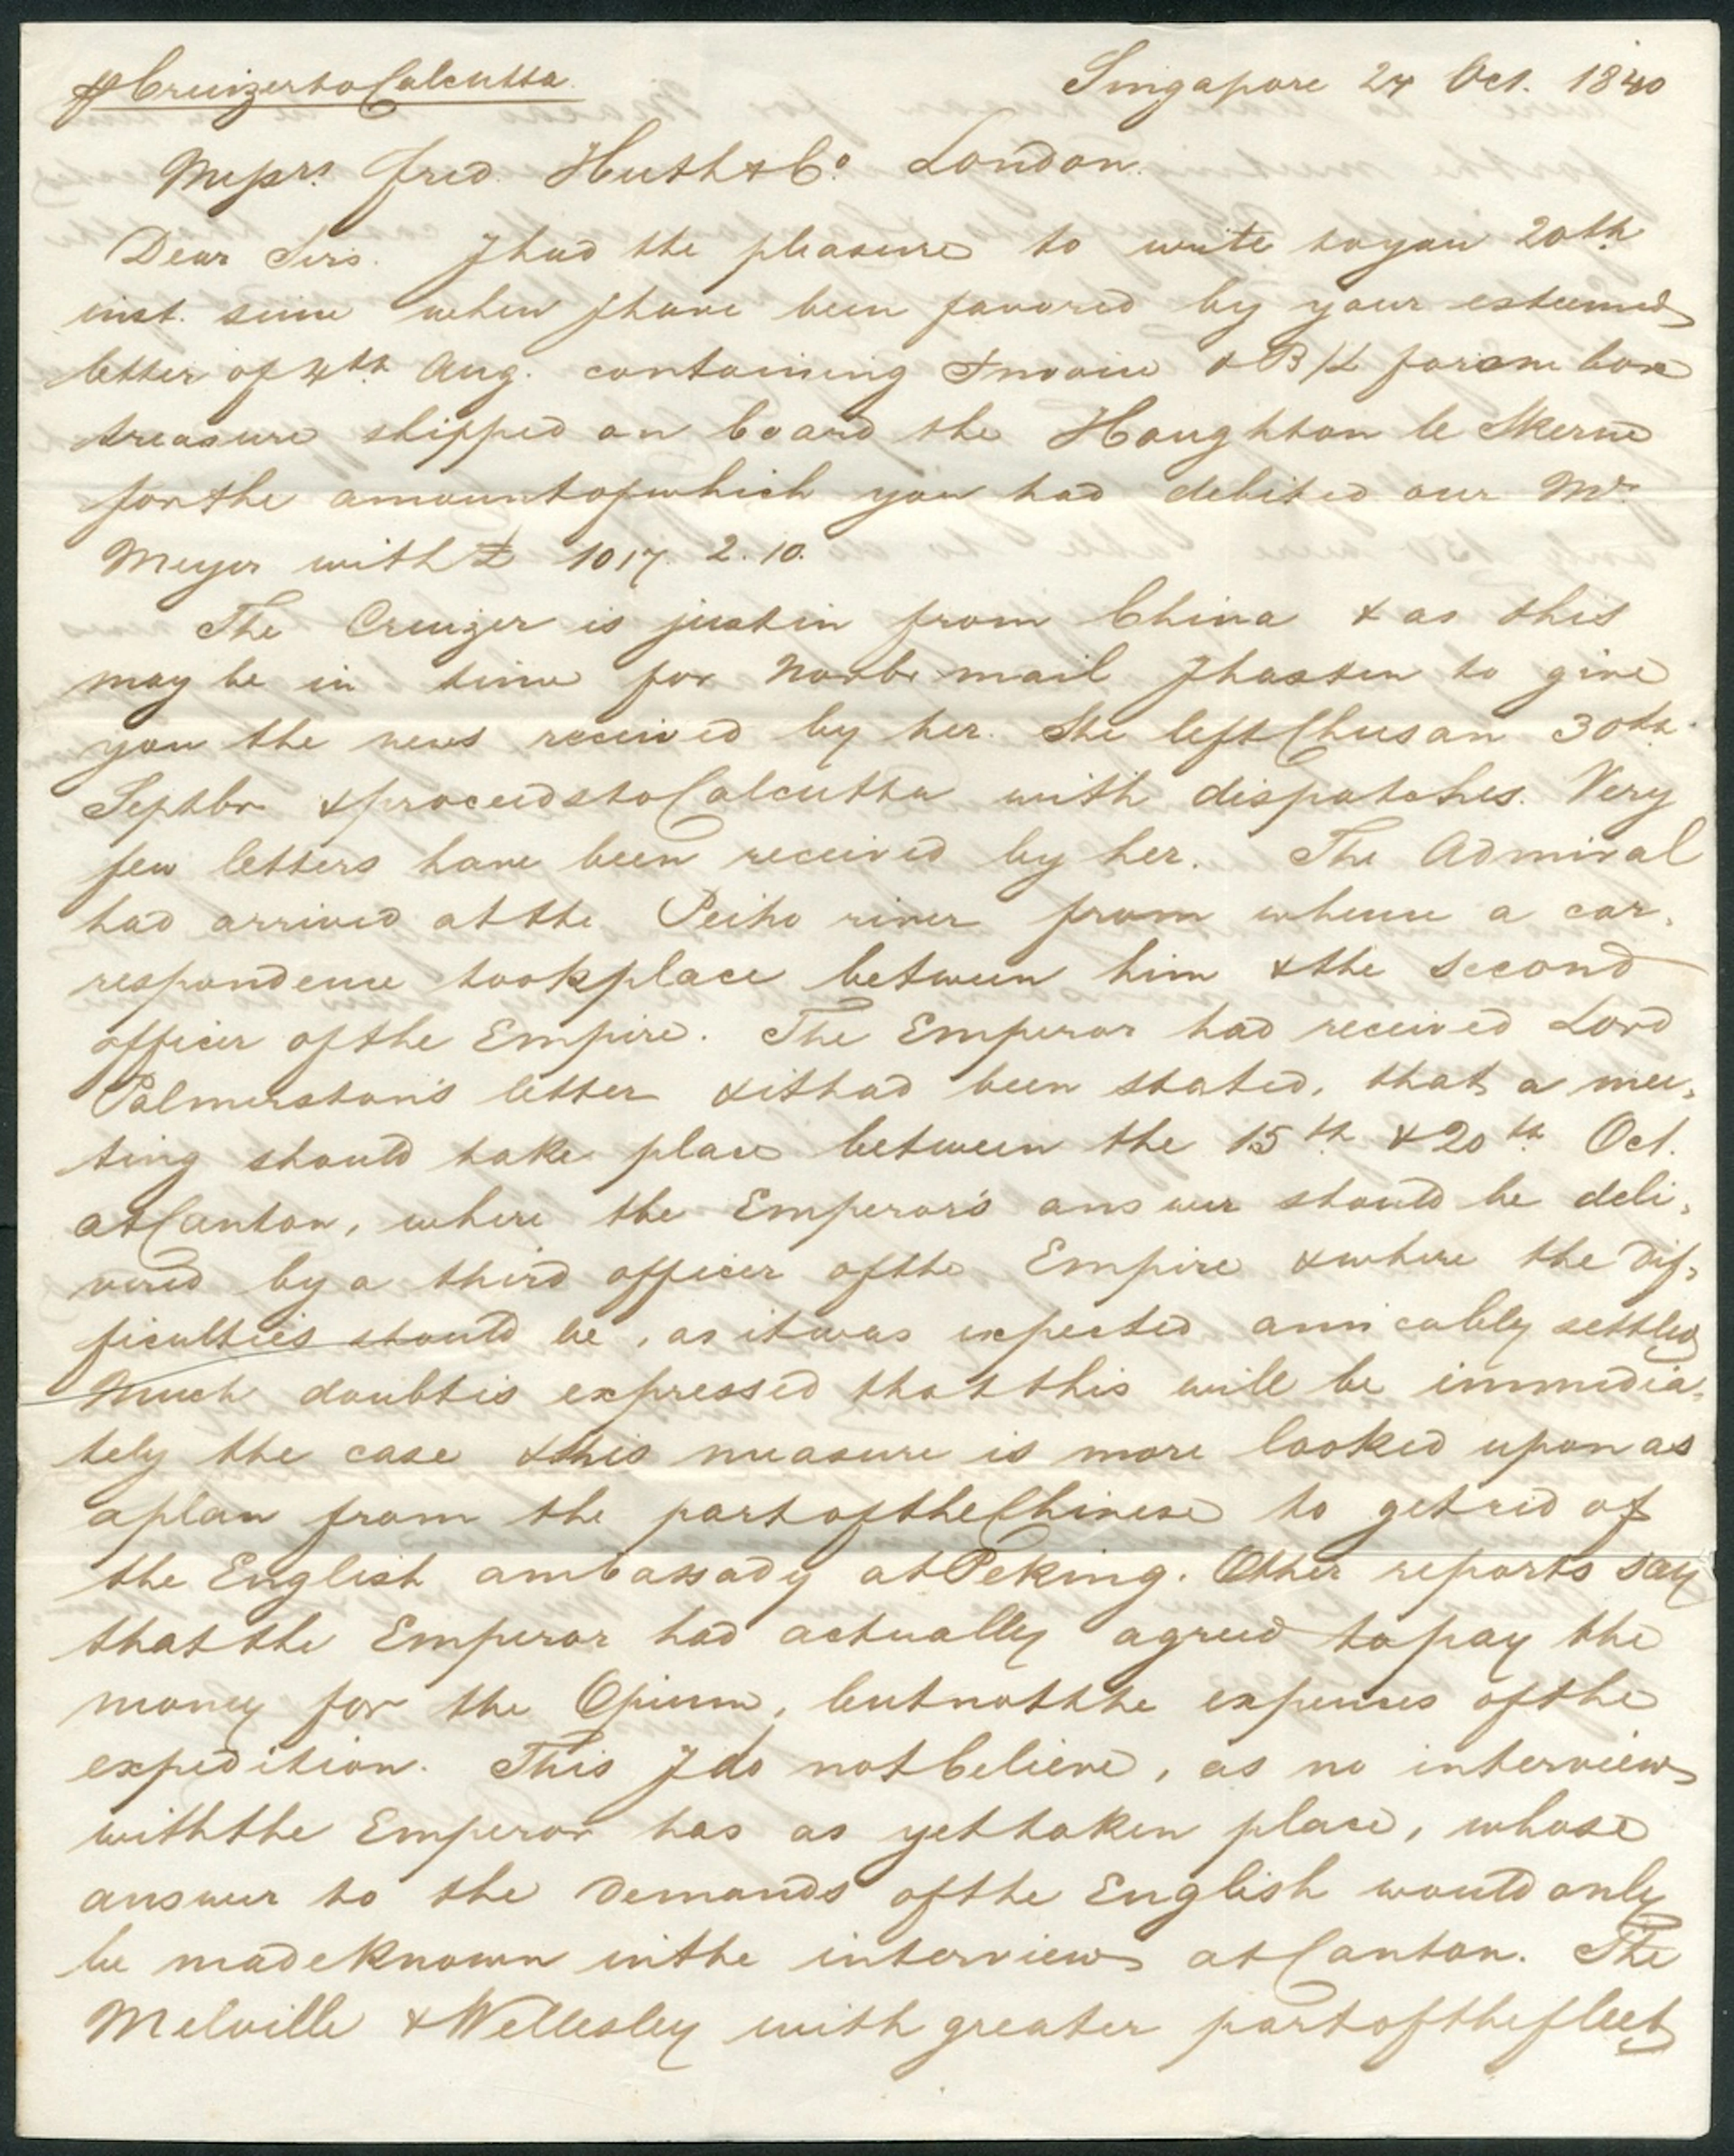 ⅌ Cruizer to Calcutta Singapore 24 Oct. 1840
Messrs. Fred. Huth & Co. London.
Dear Sirs. I had the pleasure to write to you 20th
inst. since when I have been favored by your esteemed
letter of 4th Aug. containing Invoice & B/L for one box
treasure shipped on board the Houghton le Skerne
for the amount of which you had debited our Mr
Meyer with £ 1017. 2. 10.
The Cruizer is just in from China & as this
may be in time for Novbr mail I hasten to give
you the news received by her. She left Chusan 30th
Septbr & proceeds to Calcutta with dispatches. Very
few letters have been received by her. The Admiral
had arrived at the Peiho river from whence a cor,
respondence took place between him & the second
officer of the Empire. The Emperor had received Lord
Palmerston's letter & it had been stated, that a mee,
ting should take place between the 15th & 20th Oct.
at Canton, where the Emperor's answer should be deli,
vered by a third officer of the Empire & where the dif,
ficulties should be, as it was expected amicably settled
Much doubt is expressed that this will be immedia,
tely the case & this measure is more looked upon as
a plan from the part of the Chinese to get rid of
the English ambassady at Peking. Other reports say
that the Emperor had actually agreed to pay the
money for the Opium, but not the expenses of the
expedition. This I do not believe, as no interview
with the Emperor has as yet taken place, whose
answer to the demands of the English would only
be made known in the interview at Canton. The
Melville & Wellesley with greater part of the fleet